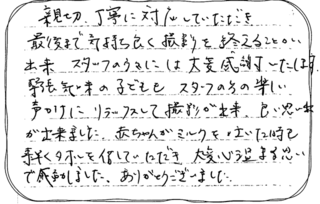 親切、丁寧に対応していただき
最後まで気持ち良く撮影を終えることが
出来 スタッフのみなさんには大変感謝いたします
の子どもも スタッフの方の楽しい
声かけに リラックスして撮影が出来、良い思い出
が出来ました。赤ちゃんがミルクを吐いた時も
手早くタオルを貸していただき 大変心温まる思い
で感動しました。ありがとうございました。